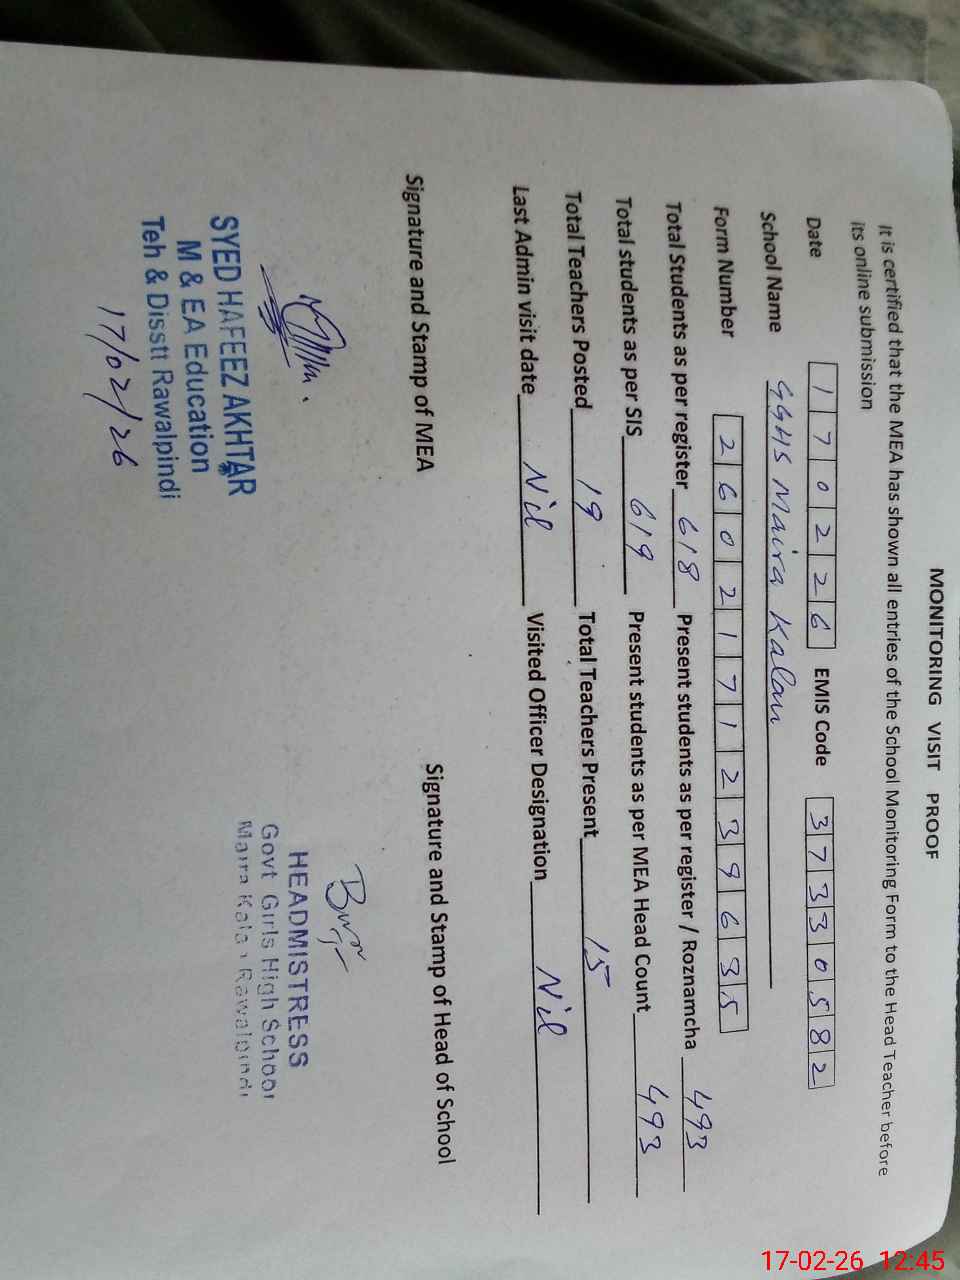 MONITORING VISIT PROOF
It is certified that the MEA has shown all entries of the School Monitoring Form to the Head Teacher before
its online submission
Date 170226 EMIS Code 37330582
School Name GGHS Maira Kalan
Form Number 2602171239635
Total Students as per register 618 Present students as per register / Roznamcha 493
Total students as per SIS 619 Present students as per MEA Head Count 493
Total Teachers Posted 19 Total Teachers Present 15
Last Admin visit date Nil Visited Officer Designation Nil
Signature and Stamp of MEA Signature and Stamp of Head of School
SYED HAFEEZ AKHTAR
M & EA Education
Teh & Disstt Rawalpindi
17/02/26
HEADMISTRESS
Govt Girls High School
Maira Kalan Rawalpindi
17-02-26 12:45